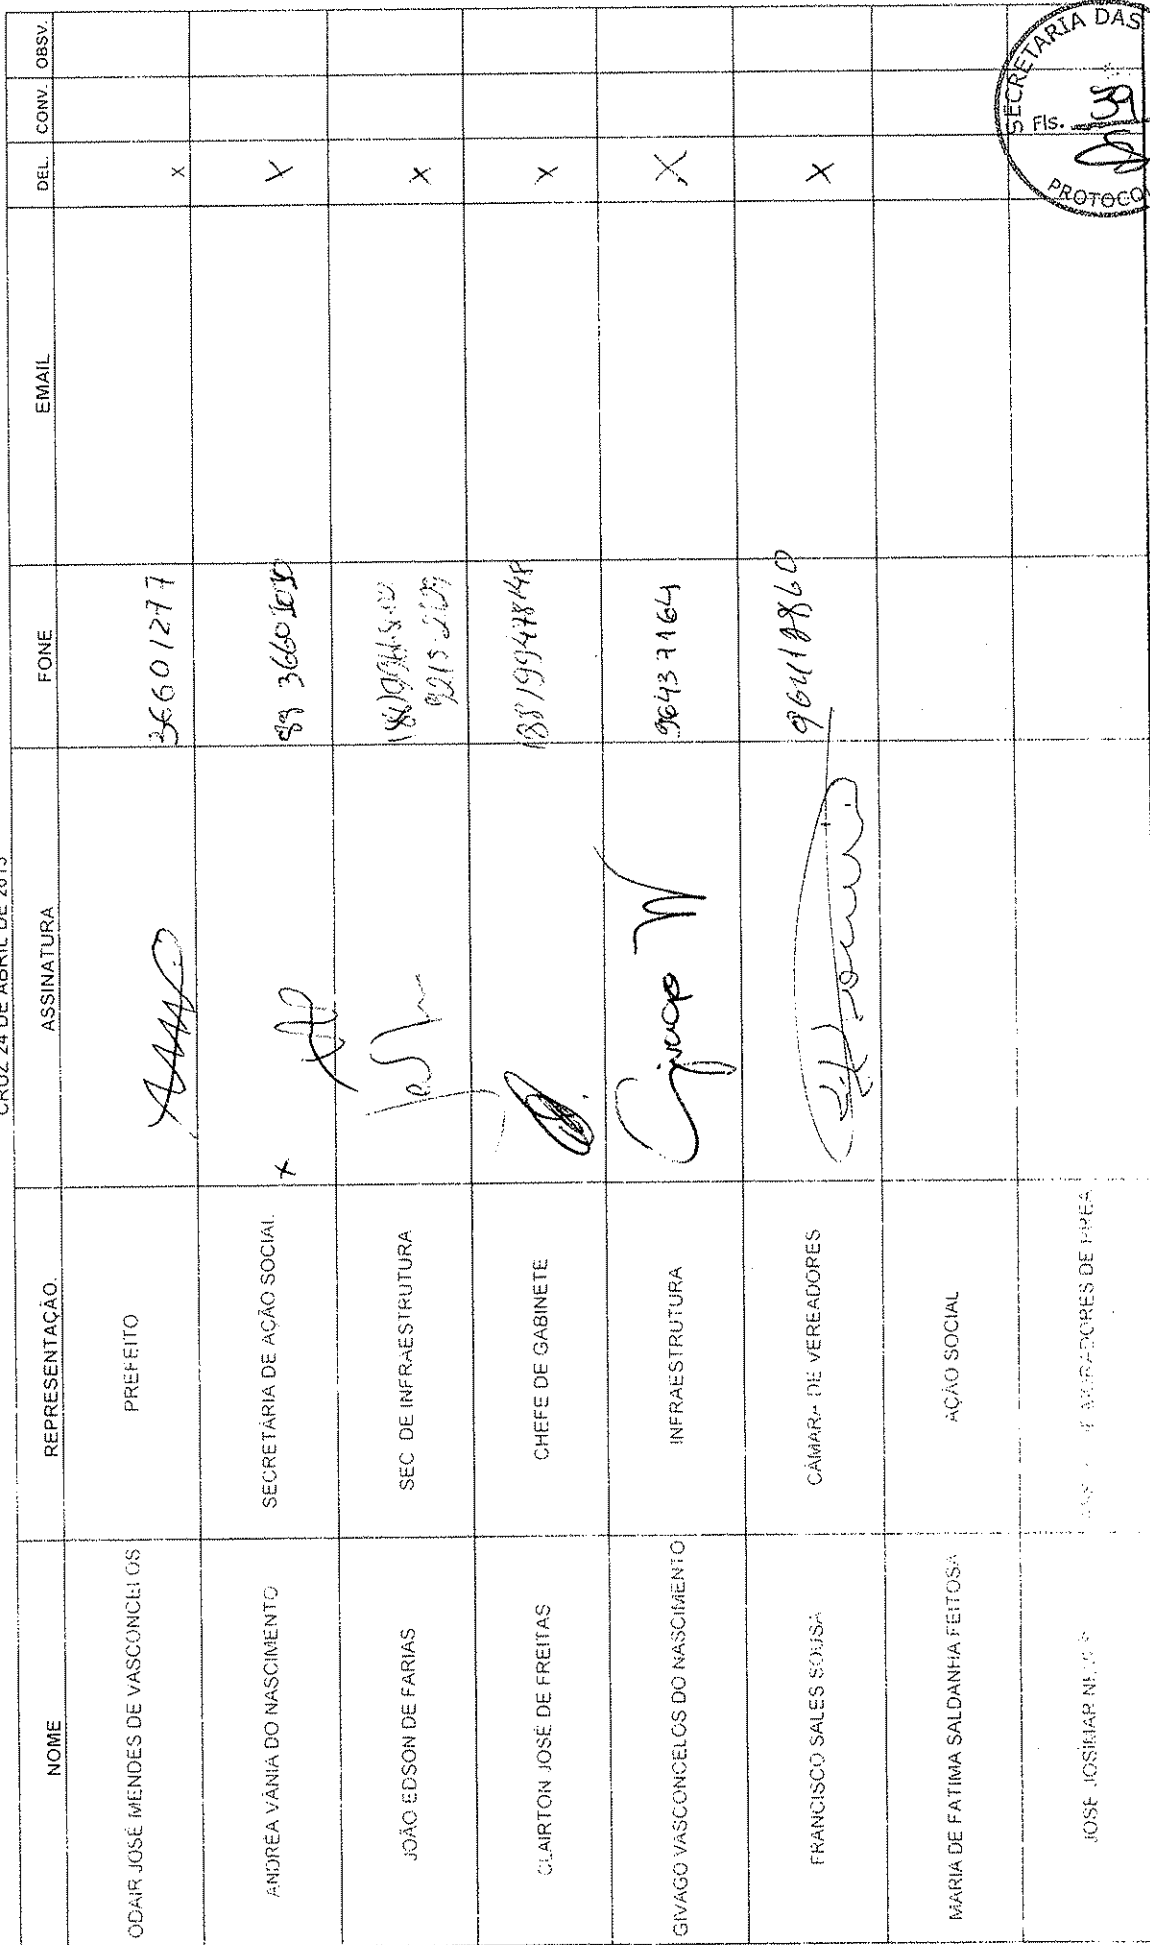 CRUZ 24 DE ABRIL DE 2013
NOME REPRESENTAÇÃO. ASSINATURA FONE EMAIL DEL. CONV. OBSV.
ODAIR JOSÉ MENDES DE VASCONCELOS PREFEITO 36601277 X
ANDRÉA VÂNIA DO NASCIMENTO SECRETÁRIA DE AÇÃO SOCIAL. X 3660 X
JOÃO EDSON DE FARIAS SEC DE INFRAESTRUTURA X
CLAIRTON JOSÉ DE FREITAS CHEFE DE GABINETE X
GIVAGO VASCONCELOS DO NASCIMENTO INFRAESTRUTURA Givago 96437164 X
FRANCISCO SALES SOUSA CÂMARA DE VEREADORES X
MARIA DE FATIMA SALDANHA FEITOSA AÇÃO SOCIAL
JOSE JOSIMAR MORADORES DE PREA
SECRETARIA DAS
Fls. 39
PROTOCO